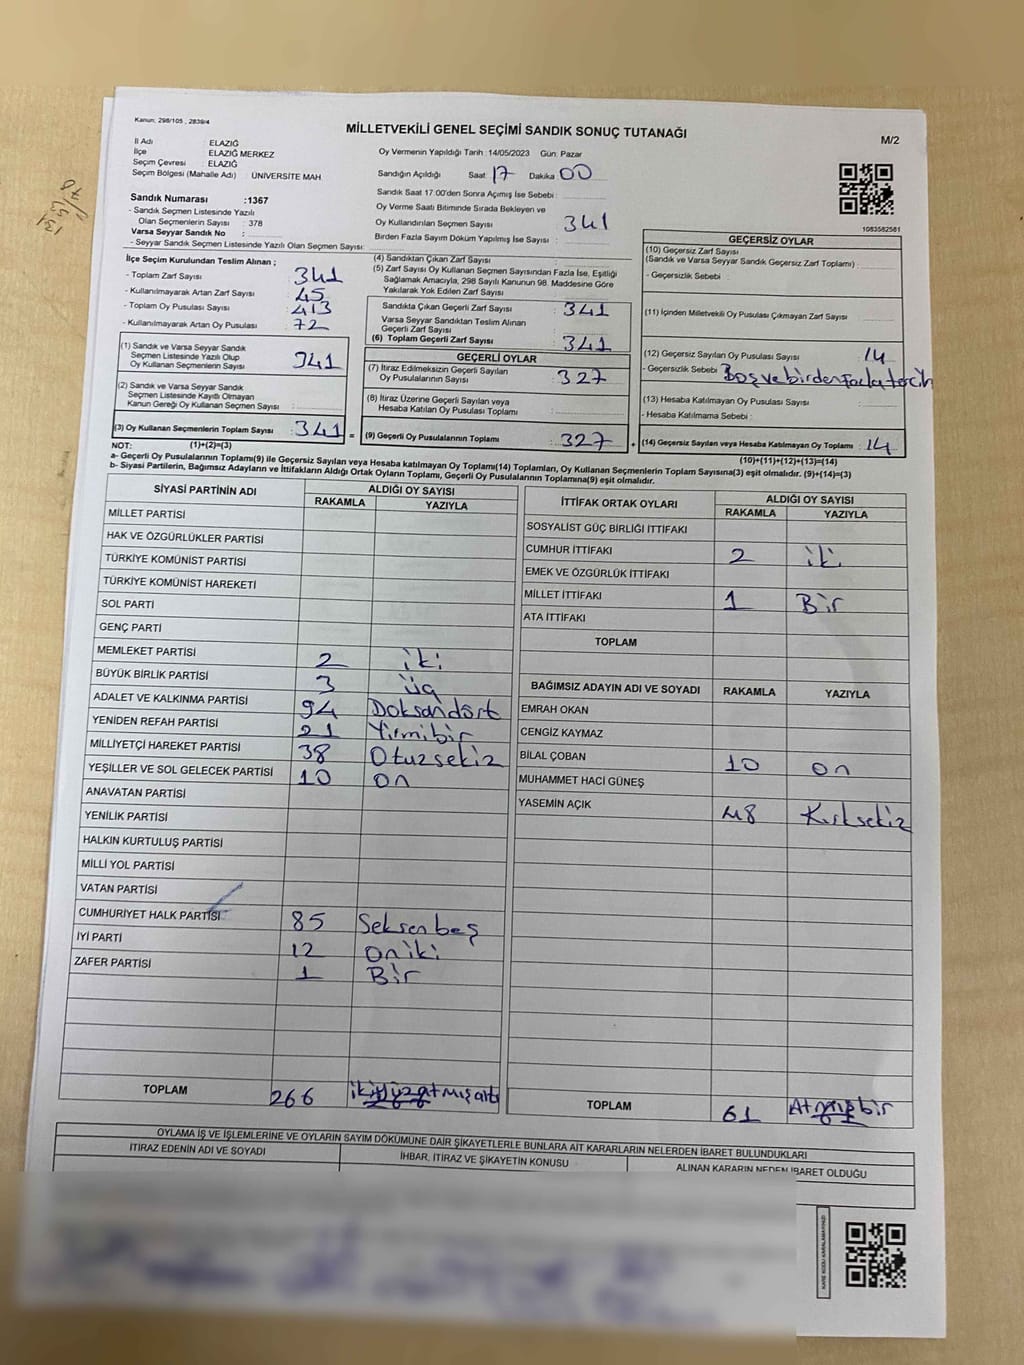 Kanun; 298/105 , 2839/4
MİLLETVEKİLİ GENEL SEÇİMİ SANDIK SONUÇ TUTANAĞI
M/2
İl Adı : ELAZIĞ
İlçe : ELAZIĞ MERKEZ
Seçim Çevresi : ELAZIĞ
Seçim Bölgesi (Mahalle Adı) : ÜNİVERSİTE MAH
Oy Vermenin Yapıldığı Tarih :14/05/2023 Gün: Pazar
Sandığın Açıldığı Saat 17 Dakika 00
Sandık Saat 17.00'den Sonra Açımış İse Sebebi :
Oy Verme Saati Bitiminde Sırada Bekleyen ve
Oy Kullandırılan Seçmen Sayısı : 341
Birden Fazla Sayım Döküm Yapılmış İse Sayısı :
Sandık Numarası :1367
- Sandık Seçmen Listesinde Yazılı
Olan Seçmenlerin Sayısı : 378
Varsa Seyyar Sandık No :
- Seyyar Sandık Seçmen Listesinde Yazılı Olan Seçmen Sayısı:
1083582581
İlçe Seçim Kurulundan Teslim Alınan ;
- Toplam Zarf Sayısı : 341
- Kullanılmayarak Artan Zarf Sayısı : 45
- Toplam Oy Pusulası Sayısı : 413
- Kullanılmayarak Artan Oy Pusulası : 72
(1) Sandık ve Varsa Seyyar Sandık
Seçmen Listesinde Yazılı Olup
Oy Kullanan Seçmenlerin Sayısı : 341
(2) Sandık ve Varsa Seyyar Sandık
Seçmen Listesinde Kayıtlı Olmayan
Kanun Gereği Oy Kullanan Seçmen Sayısı :
(3) Oy Kullanan Seçmenlerin Toplam Sayısı : 341 =
(1)+(2)=(3)
(4) Sandıktan Çıkan Zarf Sayısı :
(5) Zarf Sayısı Oy Kullanan Seçmen Sayısından Fazla İse, Eşitliği
Sağlamak Amacıyla, 298 Sayılı Kanunun 98. Maddesine Göre
Yakılarak Yok Edilen Zarf Sayısı :
Sandıkta Çıkan Geçerli Zarf Sayısı : 341
Varsa Seyyar Sandıktan Teslim Alınan
Geçerli Zarf Sayısı :
(6) Toplam Geçerli Zarf Sayısı : 341
GEÇERLİ OYLAR
(7) İtiraz Edilmeksizin Geçerli Sayılan
Oy Pusulalarının Sayısı : 327
(8) İtiraz Üzerine Geçerli Sayılan veya
Hesaba Katılan Oy Pusulası Toplamı :
(9) Geçerli Oy Pusulalarının Toplamı : 327 +
GEÇERSİZ OYLAR
(10) Geçersiz Zarf Sayısı
(Sandık ve Varsa Seyyar Sandık Geçersiz Zarf Toplamı) :
- Geçersizlik Sebebi :
(11) İçinden Milletvekili Oy Pusulası Çıkmayan Zarf Sayısı :
(12) Geçersiz Sayılan Oy Pusulası Sayısı : 14
- Geçersizlik Sebebi : Boş ve birden fazla tercih
(13) Hesaba Katılmayan Oy Pusulası Sayısı :
- Hesaba Katılmama Sebebi :
(14) Geçersiz Sayılan veya Hesaba Katılmayan Oy Toplamı : 14
(10)+(11)+(12)+(13)=(14)
NOT:
a- Geçerli Oy Pusulalarının Toplamı(9) ile Geçersiz Sayılan veya Hesaba katılmayan Oy Toplamı(14) Toplamları, Oy Kullanan Seçmenlerin Toplam Sayısına(3) eşit olmalıdır. (9)+(14)=(3)
b- Siyasi Partilerin, Bağımsız Adayların ve İttifakların Aldığı Ortak Oyların Toplamı, Geçerli Oy Pusulalarının Toplamına(9) eşit olmalıdır.
SİYASİ PARTİNİN ADI ALDIĞI OY SAYISI
RAKAMLA YAZIYLA
MİLLET PARTİSİ
HAK VE ÖZGÜRLÜKLER PARTİSİ
TÜRKİYE KOMÜNİST PARTİSİ
TÜRKİYE KOMÜNİST HAREKETİ
SOL PARTİ
GENÇ PARTİ
MEMLEKET PARTİSİ 2 iki
BÜYÜK BİRLİK PARTİSİ 3 üç
ADALET VE KALKINMA PARTİSİ 94 Doksandört
YENİDEN REFAH PARTİSİ 21 Yirmibir
MİLLİYETÇİ HAREKET PARTİSİ 38 Otuzsekiz
YEŞİLLER VE SOL GELECEK PARTİSİ 10 on
ANAVATAN PARTİSİ
YENİLİK PARTİSİ
HALKIN KURTULUŞ PARTİSİ
MİLLİ YOL PARTİSİ
VATAN PARTİSİ
CUMHURİYET HALK PARTİSİ 85 Seksen beş
İYİ PARTİ 12 oniki
ZAFER PARTİSİ 1 Bir
TOPLAM 266 ikiyüzatmışaltı
İTTİFAK ORTAK OYLARI ALDIĞI OY SAYISI
RAKAMLA YAZIYLA
SOSYALİST GÜÇ BİRLİĞİ İTTİFAKI
CUMHUR İTTİFAKI 2 iki
EMEK VE ÖZGÜRLÜK İTTİFAKI
MİLLET İTTİFAKI 1 Bir
ATA İTTİFAKI
TOPLAM
BAĞIMSIZ ADAYIN ADI VE SOYADI RAKAMLA YAZIYLA
EMRAH OKAN
CENGİZ KAYMAZ
BİLAL ÇOBAN 10 on
MUHAMMET HACİ GÜNEŞ
YASEMİN AÇIK 48 Kırksekiz
TOPLAM 61 Atmışbir
OYLAMA İŞ VE İŞLEMLERİNE VE OYLARIN SAYIM DÖKÜMÜNE DAİR ŞİKAYETLERLE BUNLARA AİT KARARLARIN NELERDEN İBARET BULUNDUKLARI
İTİRAZ EDENİN ADI VE SOYADI
İHBAR, İTİRAZ VE ŞİKAYETİN KONUSU
ALINAN KARARIN NEDEN İBARET OLDUĞU